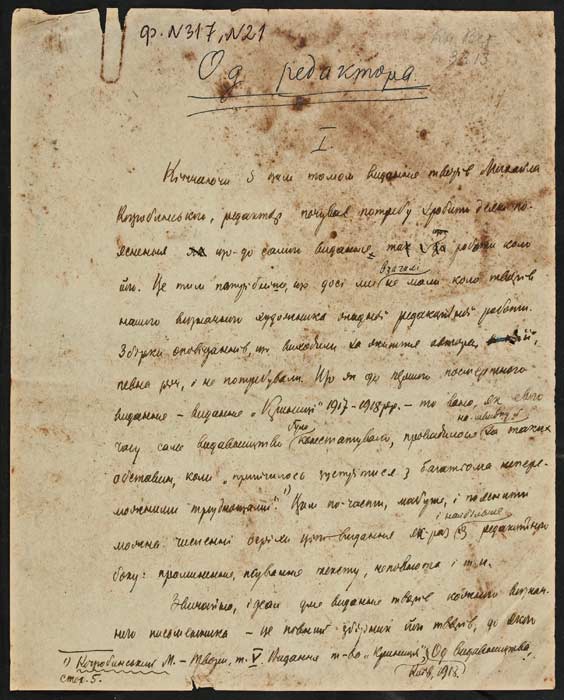 Ф. N317, N21
Од редактора.
I.
Кінчаючи 5 цим томом видання творів Михайла
Коцюбинського, редактор почуває потребу зробити деякі по-
яснення що-до самого видання, та роботи коло
його. Це тим потрібніш, що досі ми взагалі не мали коло творів
нашого визначного художника складної редакційної роботи.
Збірки оповіданнів, що виходили за життя автора,
певна річ, і не потребували. Що як до першого посмертного
видання – видання „Криниці" 1917–1918 рр. – то воно, як свого
часу саме видавництво було констатувало, провадилося за таких
обставин, коли „прийшлось зустрітися з багатьома непере-
можними труднощами".¹⁾ Цим по-части, мабуть, і пояснити
можна численні огріхи цього видання як-раз і найбільше з редакційного
боку: проминення, псування тексту, неповнота і т. и.
Звичайно, ідеал для видання творів кожного визнач-
ного письменника – це повний збірник його творів, до якого
¹⁾ Коцюбинський М. – Твори, т. V. Видання т-ва „Криниця". Од видавництва,
Київ, 1918.
стор. 5.